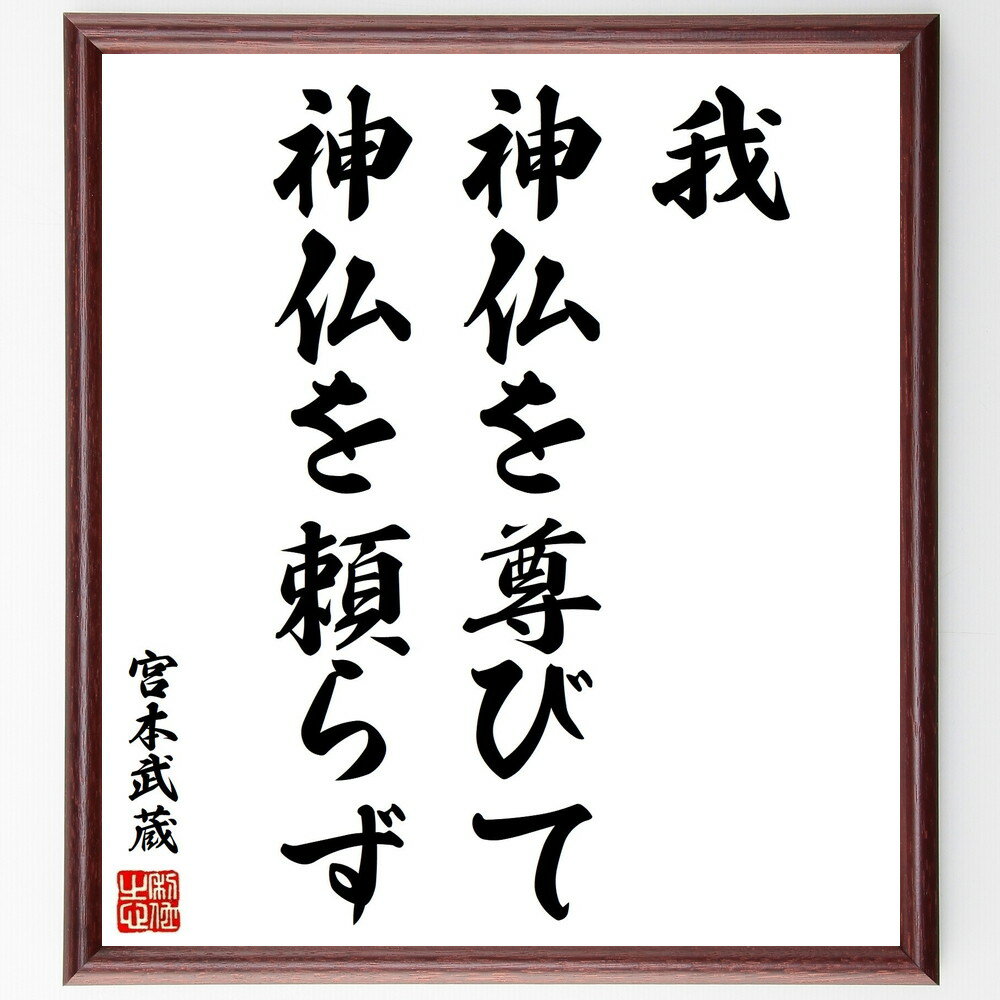 我
神仏を尊びて
神仏を頼らず
宮本武蔵